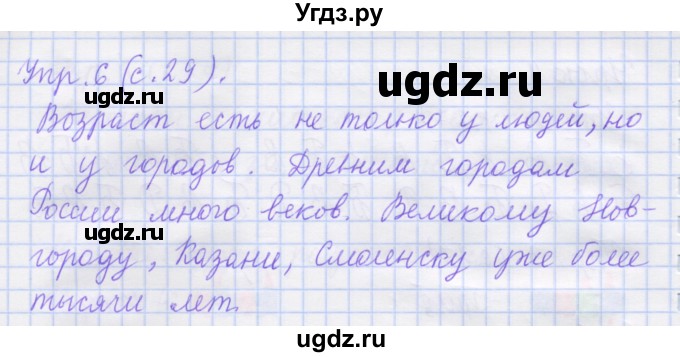 Угдз.ру
Упр. 6 (с. 29).
ugdz.ru
Возраст есть не только у людей, но
и у городов. Древним городам
ugdz.ru
России много веков. Великому Нов-
ugdz.ru
городу, Казани, Смоленску уже более
тысячи лет.
ugdz.ru